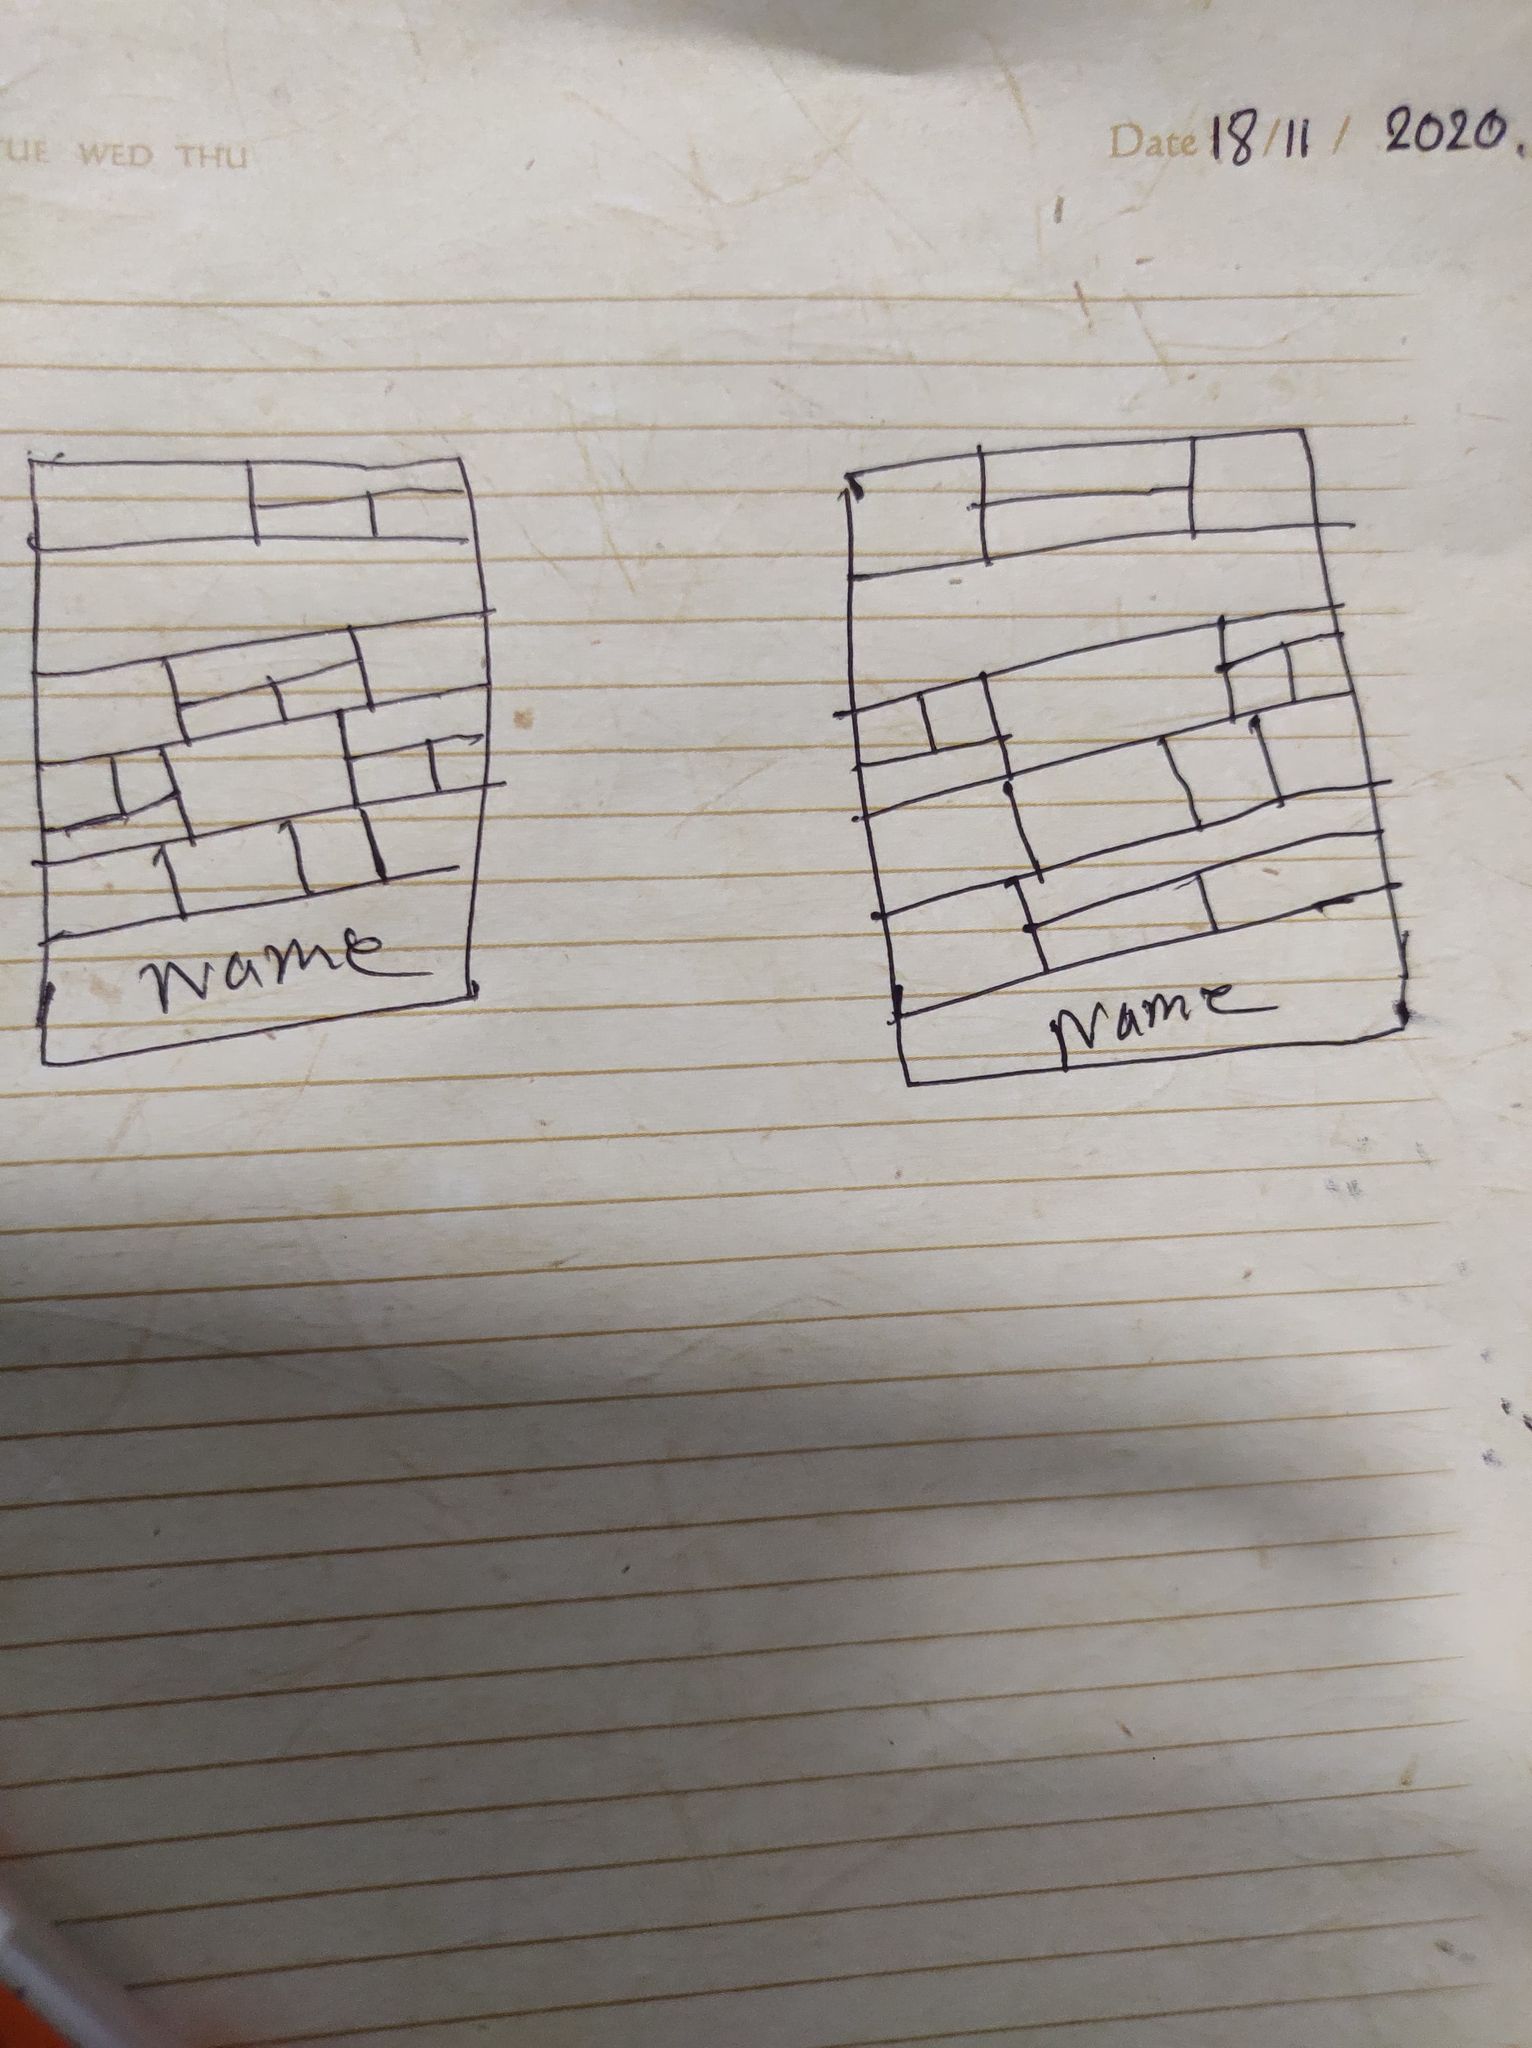 TUE WED THU
Date 18/11/2020.
Name
Name